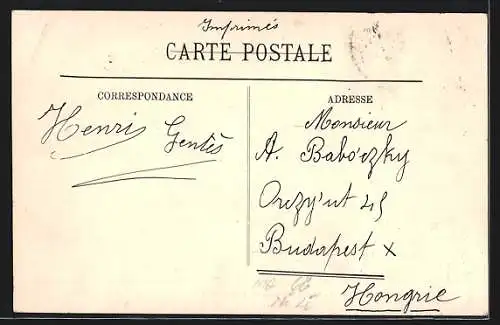 Imprimés
CARTE POSTALE
CORRESPONDANCE
Henri
Gentès
ADRESSE
Monsieur
A. Babo'czky
Orczy'ut 45
Budapest X
Hongrie